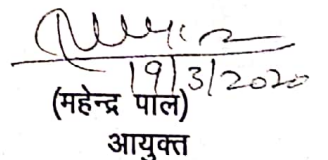 19/3/2020
(महेन्द्र पाल)
आयुक्त